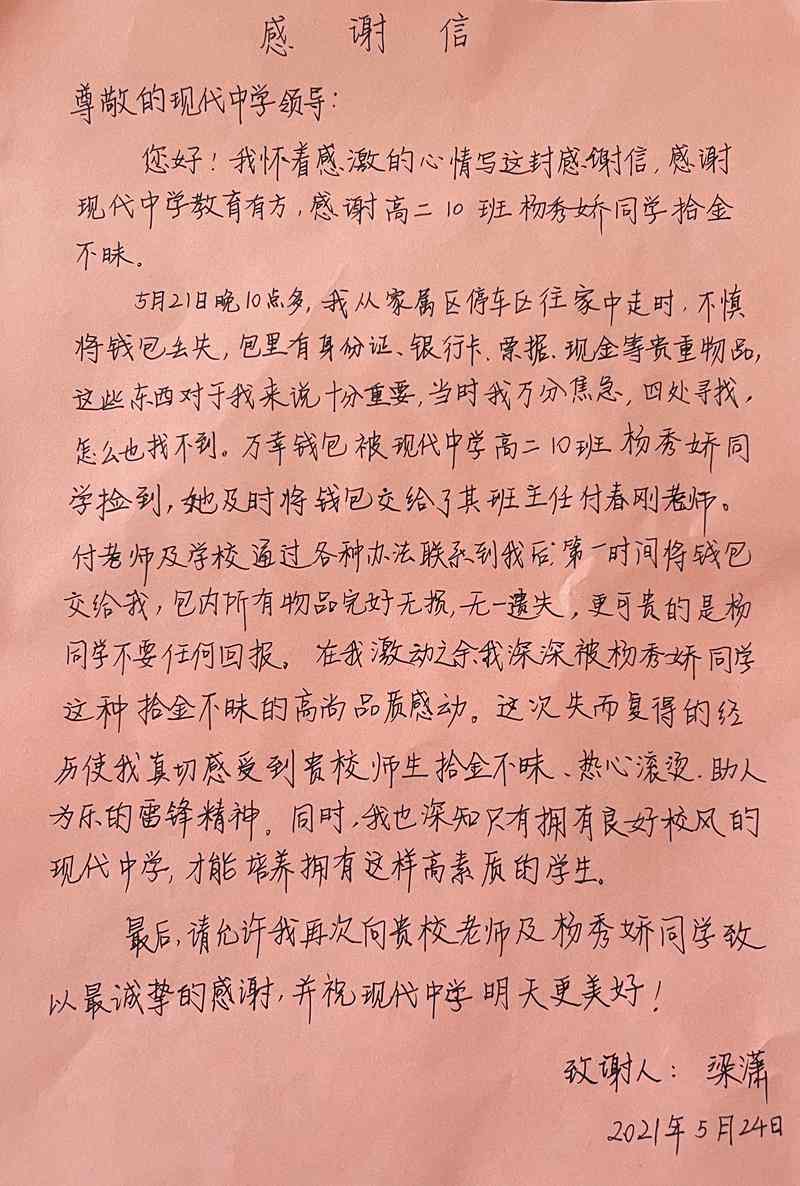 感谢信
尊敬的现代中学领导：
您好！我怀着感激的心情写这封感谢信，感谢
现代中学教育有方，感谢高二10班杨秀娇同学拾金
不昧。
5月21日晚10点多，我从家属区停车区往家中走时，不慎
将钱包丢失，包里有身份证、银行卡、票据、现金等贵重物品，
这些东西对于我来说十分重要，当时我万分焦急，四处寻找，
怎么也找不到。万幸钱包被现代中学高二10班杨秀娇同
学捡到，她及时将钱包交给了其班主任付春刚老师。
付老师及学校通过各种办法联系到我后，第一时间将钱包
交给我，包内所有物品完好无损，无一遗失，更可贵的是杨
同学不要任何回报。在我激动之余我深深被杨秀娇同学
这种拾金不昧的高尚品质感动。这次失而复得的经
历使我真切感受到贵校师生拾金不昧、热心滚烫、助人
为乐的雷锋精神。同时，我也深知只有拥有良好校风的
现代中学，才能培养拥有这样高素质的学生。
最后，请允许我再次向贵校老师及杨秀娇同学致
以最诚挚的感谢，并祝现代中学明天更美好！
致谢人：梁潇
2021年5月24日